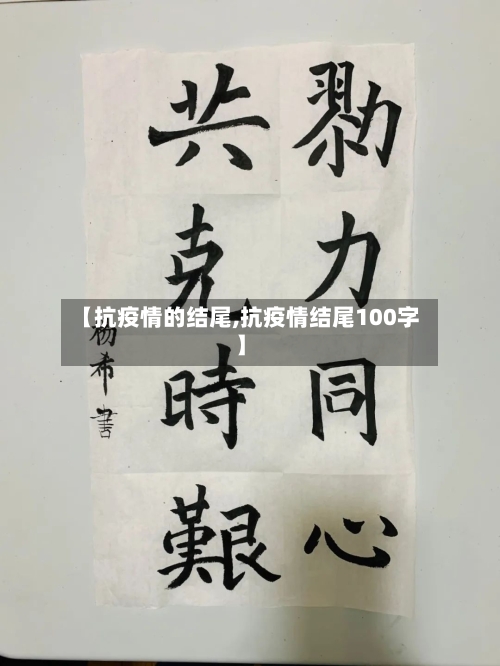 勠力同心
共克時艱
楊希書
【抗疫情的结尾,抗疫情结尾100字
】